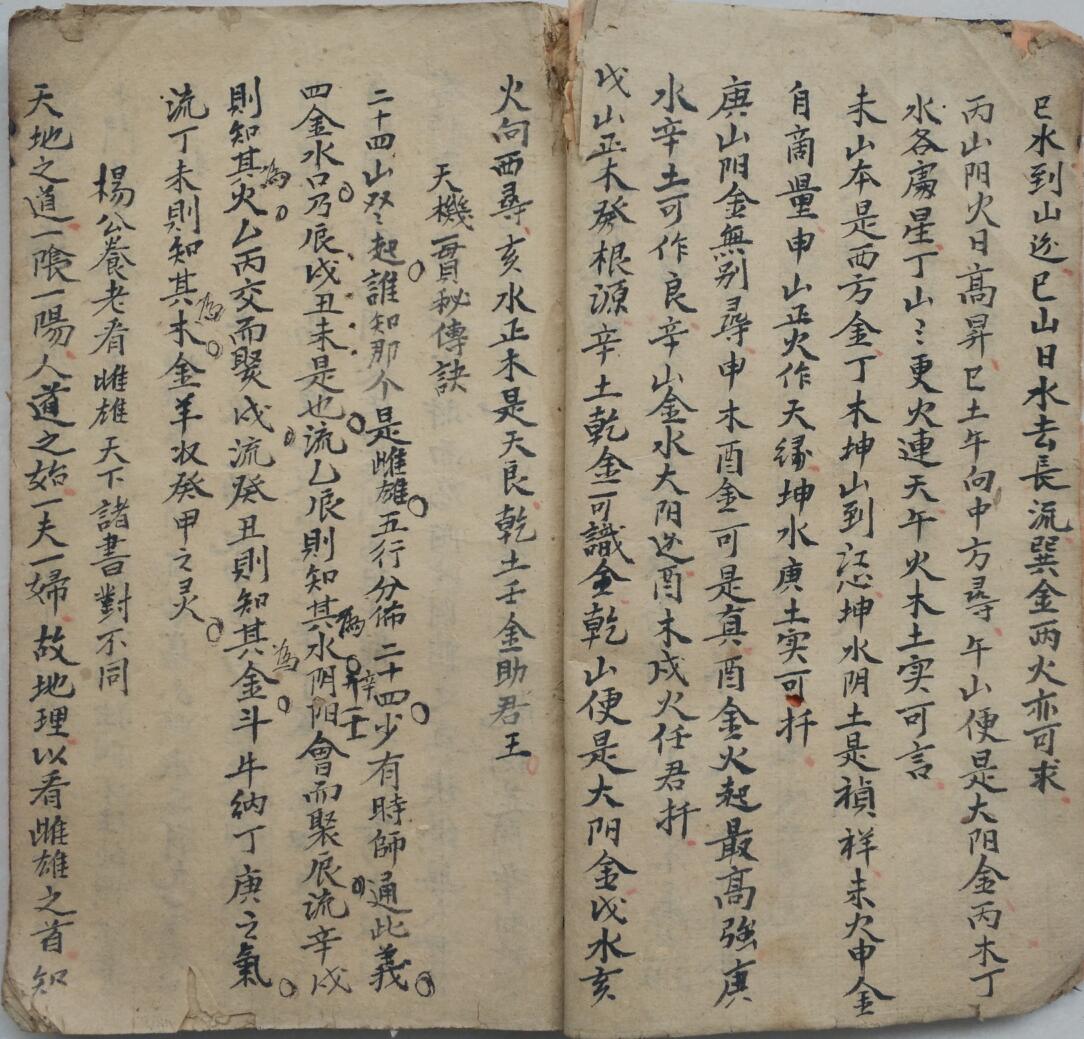 巳水到山边巳山日水去長流巽金丙火亦可求
丙山阳火日高昇巳土午向中方尋午山便是大阳金丙木丁
水各属星丁山〻更火連天午火木土实可言
未山本是西方金丁木坤山到 坤水阴土是禎祥未火申金
自啇量申山正火作天緣坤水庚土实可扦
庚山阳金無别尋申木酉金可是真酉金火起最高強庚
水辛土可作良辛山金水大阳边酉木戍火任君扦
戍山正木發根源辛土乾金可識全乾山便是大阳金戍水亥
火向西尋亥水正木是天良乾土壬金助君王
天機一貫秘傳訣
二十四山双双起誰知那个是雌雄五行分佈二十四少有時師通此義
四金水口乃辰戍丑未是也流乙辰則知其為水阴阳會而聚辰流辛戍
則知其為火乙丙交而聚戍流癸丑則知其為金斗牛納丁庚之氣
流丁未則知其為木金羊収癸甲之灵
楊公養老看雌雄天下諸書對不同
天地之道一隂一陽人道之始一夫一婦故地理以看雌雄之首知